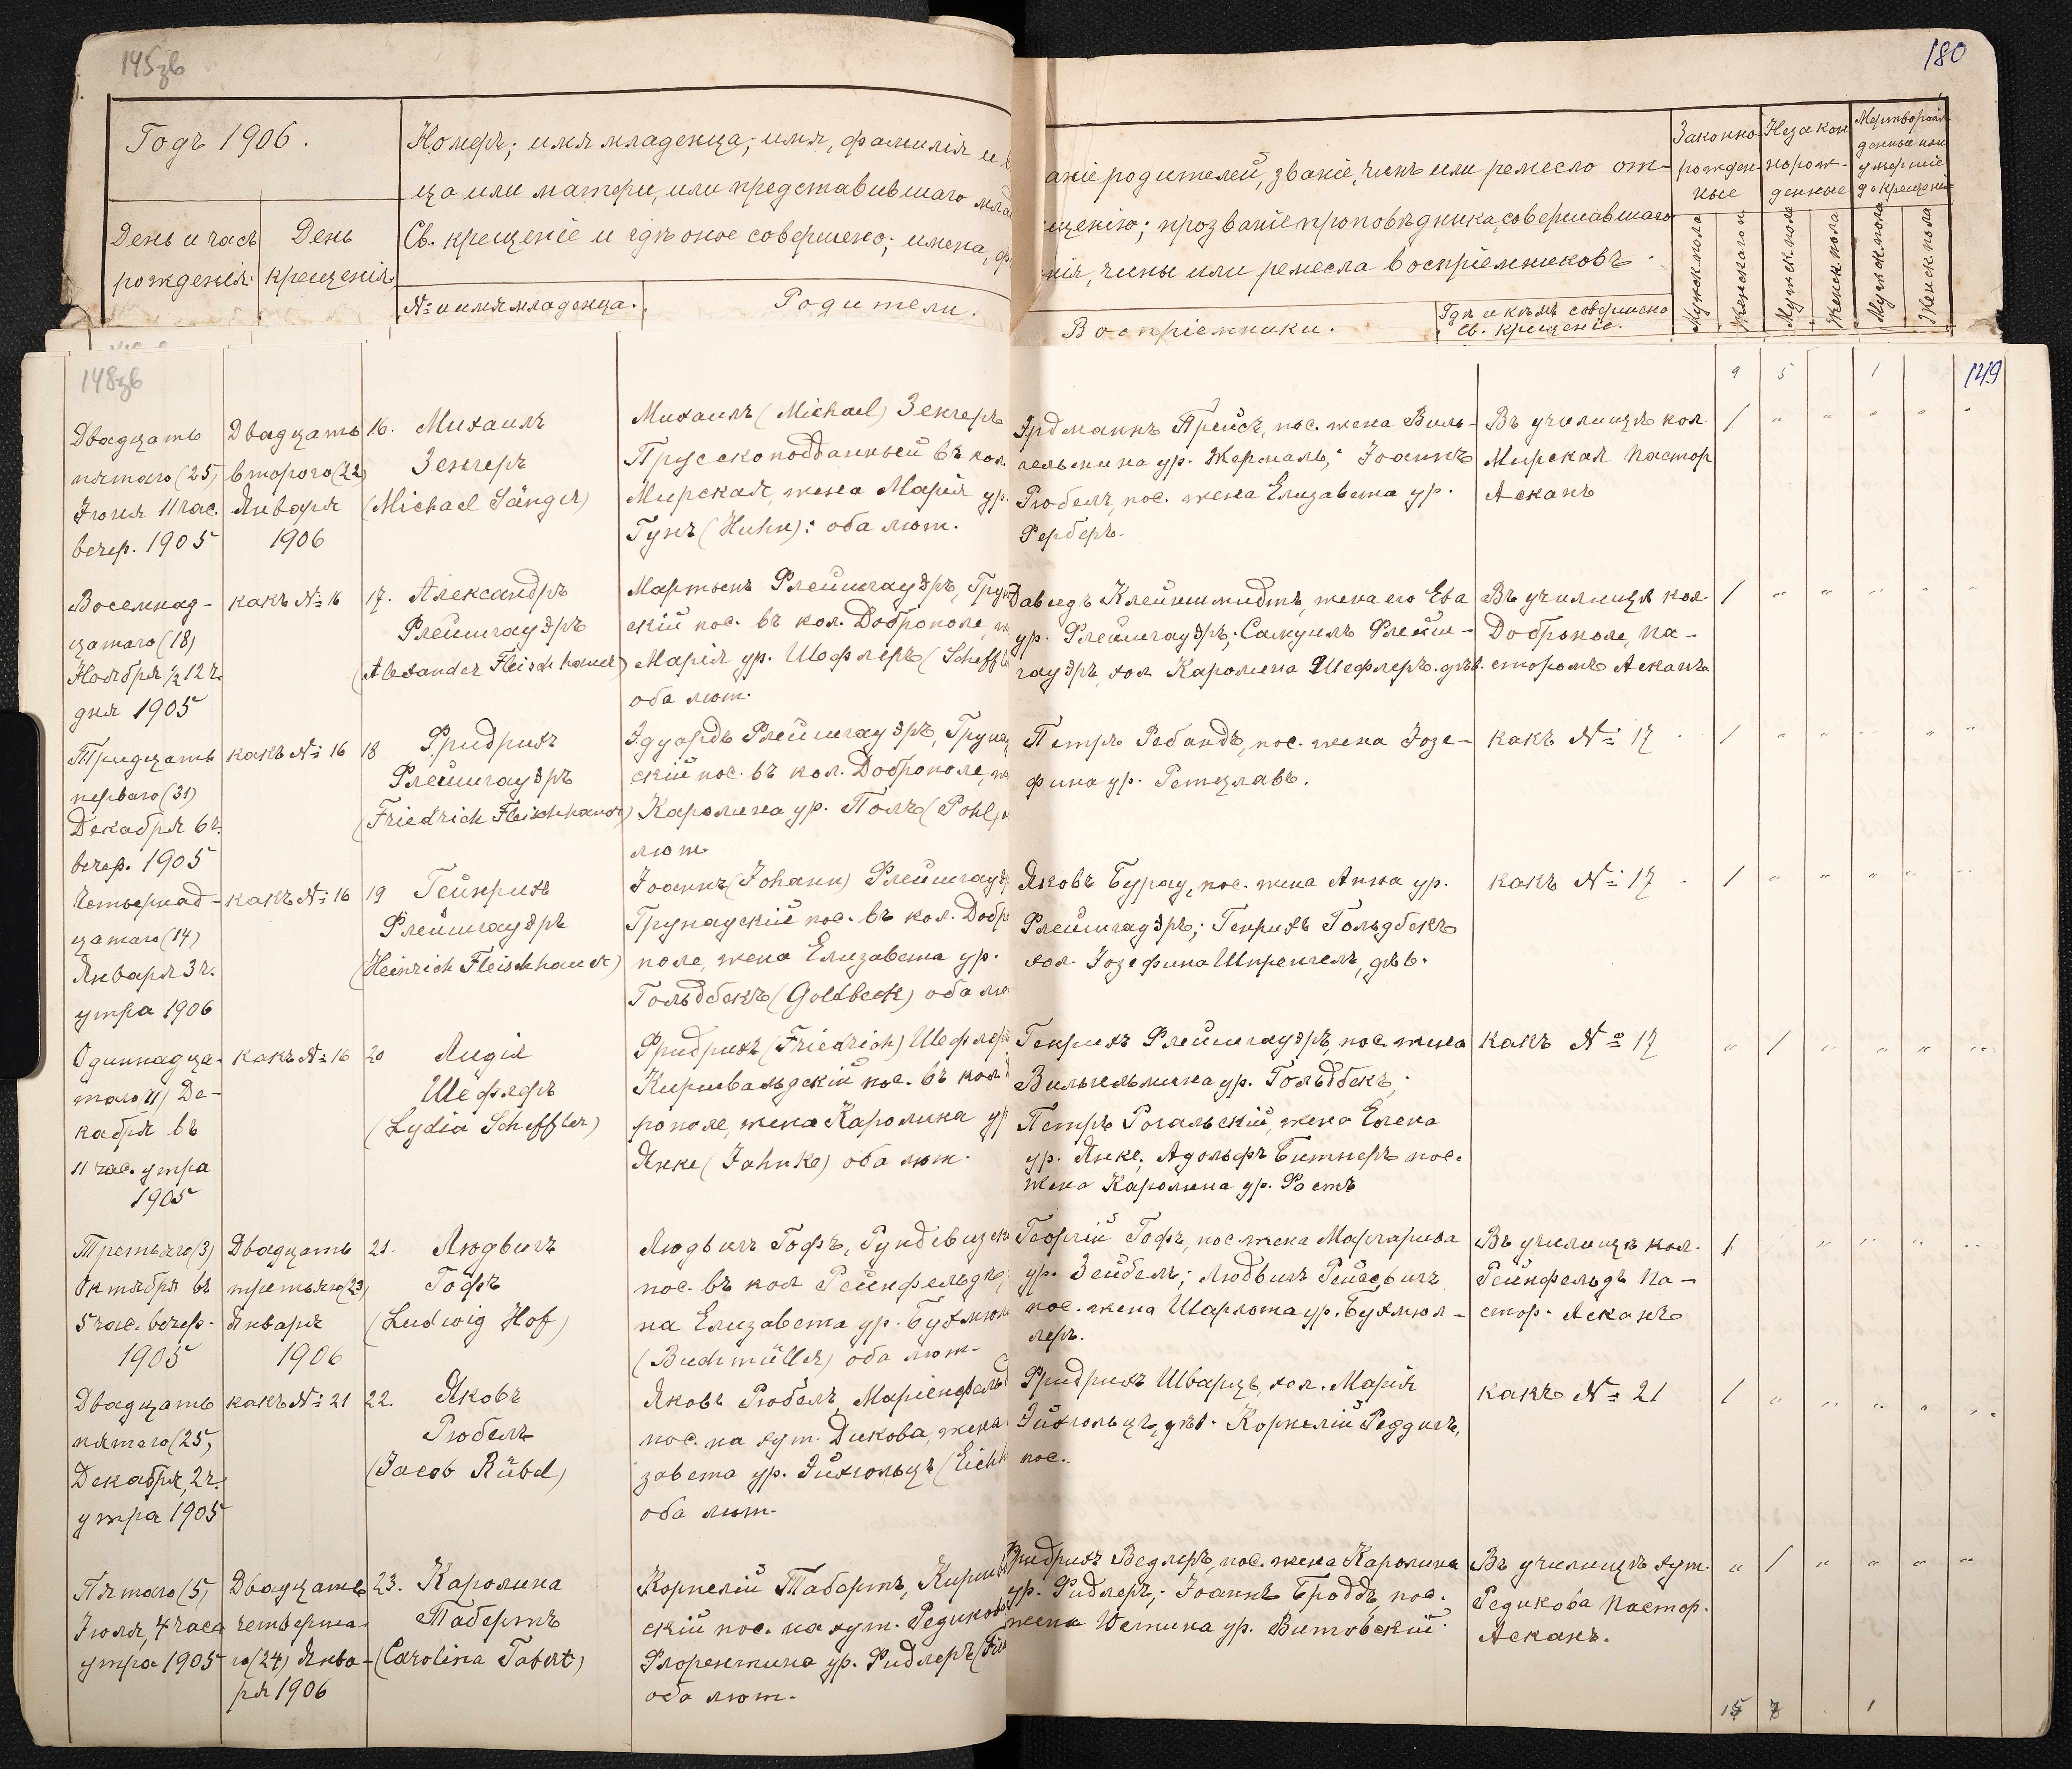 145зв
180
Годъ 1906.
День и часъ рожденія.
День крещенія.
Номеръ; имя младенца; имя, фамилія и
ца или матери, или представившаго
Св. крещеніе и гдѣ оное совершено; имена,
№ и имя младенца.
Родители.
аніе родителей, званіе, чинъ или ремесло от-
щенію; прозваніе проповѣдника, совершавшаго
нія, чины или ремесла воспріемниковъ.
Воспріемники.
Гдѣ и кѣмъ совершено
Св. крещеніе.
Законно-
рожден-
ные
Незакон
норож-
денные
Мертворож-
денные или
умершіе
до крещенія
Мужск. пола
Женскаго п
Мужск. пола
Женск. пола
Мужск. пола
Женск. пола
148зв
9 5 1
149
Двадцать
пятаго (25)
Іюня 11 час.
вечер. 1905
Двадцать
второго (22)
Января
1906
16. Михаилъ
Зенгеръ
(Michael Sänger)
Михаилъ (Michael) Зенгеръ
Прусскоподданный въ кол.
Мирская, жена Марія ур.
Гунъ (Huhn): оба лют.
Эрдманнъ Прейсъ, пос. жена Виль-
гельмина ур. Жермаль; Іоаннъ
Рюбель, пос. жена Елизавета ур.
Ферберъ.
Въ училищѣ кол.
Мирская Пастор
Асканъ
1 „ „ „ „ „
Восемнад-
цатаго (18)
Ноября ½ 12 ч.
дня 1905
какъ № 16
17. Александръ
Флейшгауэръ
(Alexander Fleischhauer)
Мартынъ Флейшгауэръ, Грун
скій пос. въ кол. Доброполе, ж
Марія ур. Шефлеръ (Scheffl
оба лют.
Давидъ Клейншмидтъ, жена его Ева
ур. Флейшгауэръ; Самуилъ Флейш-
гауэръ, хол. Каролина Шефлеръ, дѣв.
Въ училищѣ кол.
Доброполе, Па-
сторомъ Асканъ
1 „ „ „ „ „
Тридцать
перваго (31)
Декабря 6 ч.
вечер. 1905
какъ № 16
18 Фридрихъ
Флейшгауэръ
(Friedrich Fleischhauer)
Эдуардъ Флейшгауэръ, Грунау
скій пос. въ кол. Доброполе, ж
Каролина ур. Полъ (Pohl)
лют.
Петръ Ребандъ, пос. жена Іозе-
фина ур. Ретцлавъ.
какъ № 17
1 „ „ „ „ „
Четырнад-
цатаго (14)
Января 3 ч.
утра 1906
какъ № 16
19 Гейнрихъ
Флейшгауэръ
(Heinrich Fleischhauer)
Іоаннъ (Johann) Флейшгауэр
Грунаускій пос. въ кол. Добро
поле, жена Елизавета ур.
Гольдбекъ (Goldbeck) оба лю
Яковъ Бурау, пос. жена Анна ур.
Флейшгауэръ; Генрихъ Гольдбекъ
хол. Іозефина Шпренгель, дѣв.
какъ № 17
1 „ „ „ „ „
Одиннадца-
таго (11) Де-
кабря въ
11 час. утра
1905
какъ № 16
20 Лидія
Шефлеръ
(Lydia Scheffler)
Фридрихъ (Friedrich) Шефлеръ
Киршвальдскій пос. въ кол. Д
рополе, жена Каролина ур
Янке (Jahnke) оба лют.
Генрихъ Флейшгауэръ, пос. жена
Вильгельмина ур. Гольдбекъ;
Петръ Рогальскій, жена Елена
ур. Янке; Адольфъ Битнеръ пос.
жена Каролина ур. Ростъ
какъ № 17
„ 1 „ „ „ „
Третьяго (3)
Октября въ
5 час. вечер.
1905
Двадцать
третьяго (23)
Января
1906
21. Людвигъ
Гофъ
(Ludwig Hof)
Людвигъ Гофъ,
пос. въ кол Рейнфельдъ,
на Елизавета ур. Бухмюл
(Buchmüller) оба лют.
Георгій Гофъ, пос. жена Маргарита
ур. Зейбель; Людвигъ
пос. жена Шарлота ур. Бухмюл-
леръ.
Въ училищѣ кол.
Рейнфельдъ Па-
стор. Асканъ
1 „ „ „ „
Двадцать
пятаго (25)
Декабря, 2 ч.
утра 1905
какъ № 21
22. Яковъ
Рюбель
(Jacob Rübel)
Яковъ Рюбель, Маріенфельд
пос. на хут. Дикова, жена
завета ур. Эйхгольцъ (Eichh
оба лют.
Фридрихъ Шварцъ, хол. Марія
Эйхгольцъ, дѣв. Корнелій Реддигъ,
пос.
какъ № 21
1 „ „ „ „ „
Пятаго (5)
Іюля, 4 часа
утра 1905
Двадцать
четверта
го (24) Янва-
ря 1906
23. Каролина
Табертъ
(Carolina Tabert)
Корнелій Табертъ, Киршв
скій пос. на хут. Редикова
Флорентина ур. Фидлеръ (Fid
оба лют.
Фридрихъ Ведлеръ, пос. жена Каролина
ур. Фидлеръ; Іоаннъ Броддъ, пос.
жена ур. Витовскій
Въ училищѣ хут.
Редикова Пастор.
Асканъ.
„ 1 „ „ „ „
15 7 1